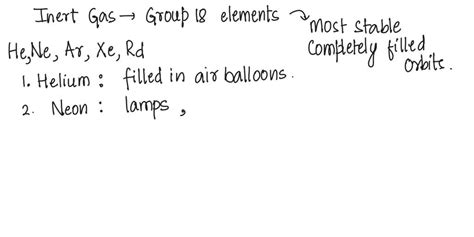 Inert Gas → Group 18 elements → Most stable
Completely filled
orbits.
He, Ne, Ar, Xe, Rd
1. Helium : filled in air balloons.
2. Neon : lamps ,